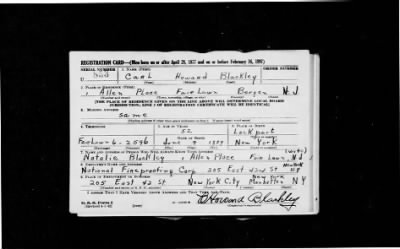 REGISTRATION CARD—(Men born on or after April 28, 1877 and on or before February 16, 1897)
SERIAL NUMBER 1. NAME (Print) ORDER NUMBER
U Carl Howard Blackley
(First) (Middle) (Last)
2. PLACE OF RESIDENCE (Print)
Allen Place Fair Lawn Bergen N J
(Number and street) (Town, township, village, or city) (County) (State)
[THE PLACE OF RESIDENCE GIVEN ON THE LINE ABOVE WILL DETERMINE LOCAL BOARD
JURISDICTION; LINE 2 OF REGISTRATION CERTIFICATE WILL BE IDENTICAL]
3. MAILING ADDRESS
same
4. TELEPHONE 5. AGE IN YEARS 6. PLACE OF BIRTH
52 Lockport
DATE OF BIRTH
Fairlawn-6-2596 June 1889 New York
7. NAME AND ADDRESS OF PERSON WHO WILL ALWAYS KNOW YOUR ADDRESS
(wife)
Natalie Blackley Allen Place Fair Lawn N J
8. EMPLOYER'S NAME AND ADDRESS
National Fireproofing Corp. 205 East 42nd St NY
9. PLACE OF EMPLOYMENT OR BUSINESS
205 East 42 St New York City Manhattan N Y
I AFFIRM THAT I HAVE VERIFIED ABOVE ANSWERS AND THAT THEY ARE TRUE.
C Howard Blackley